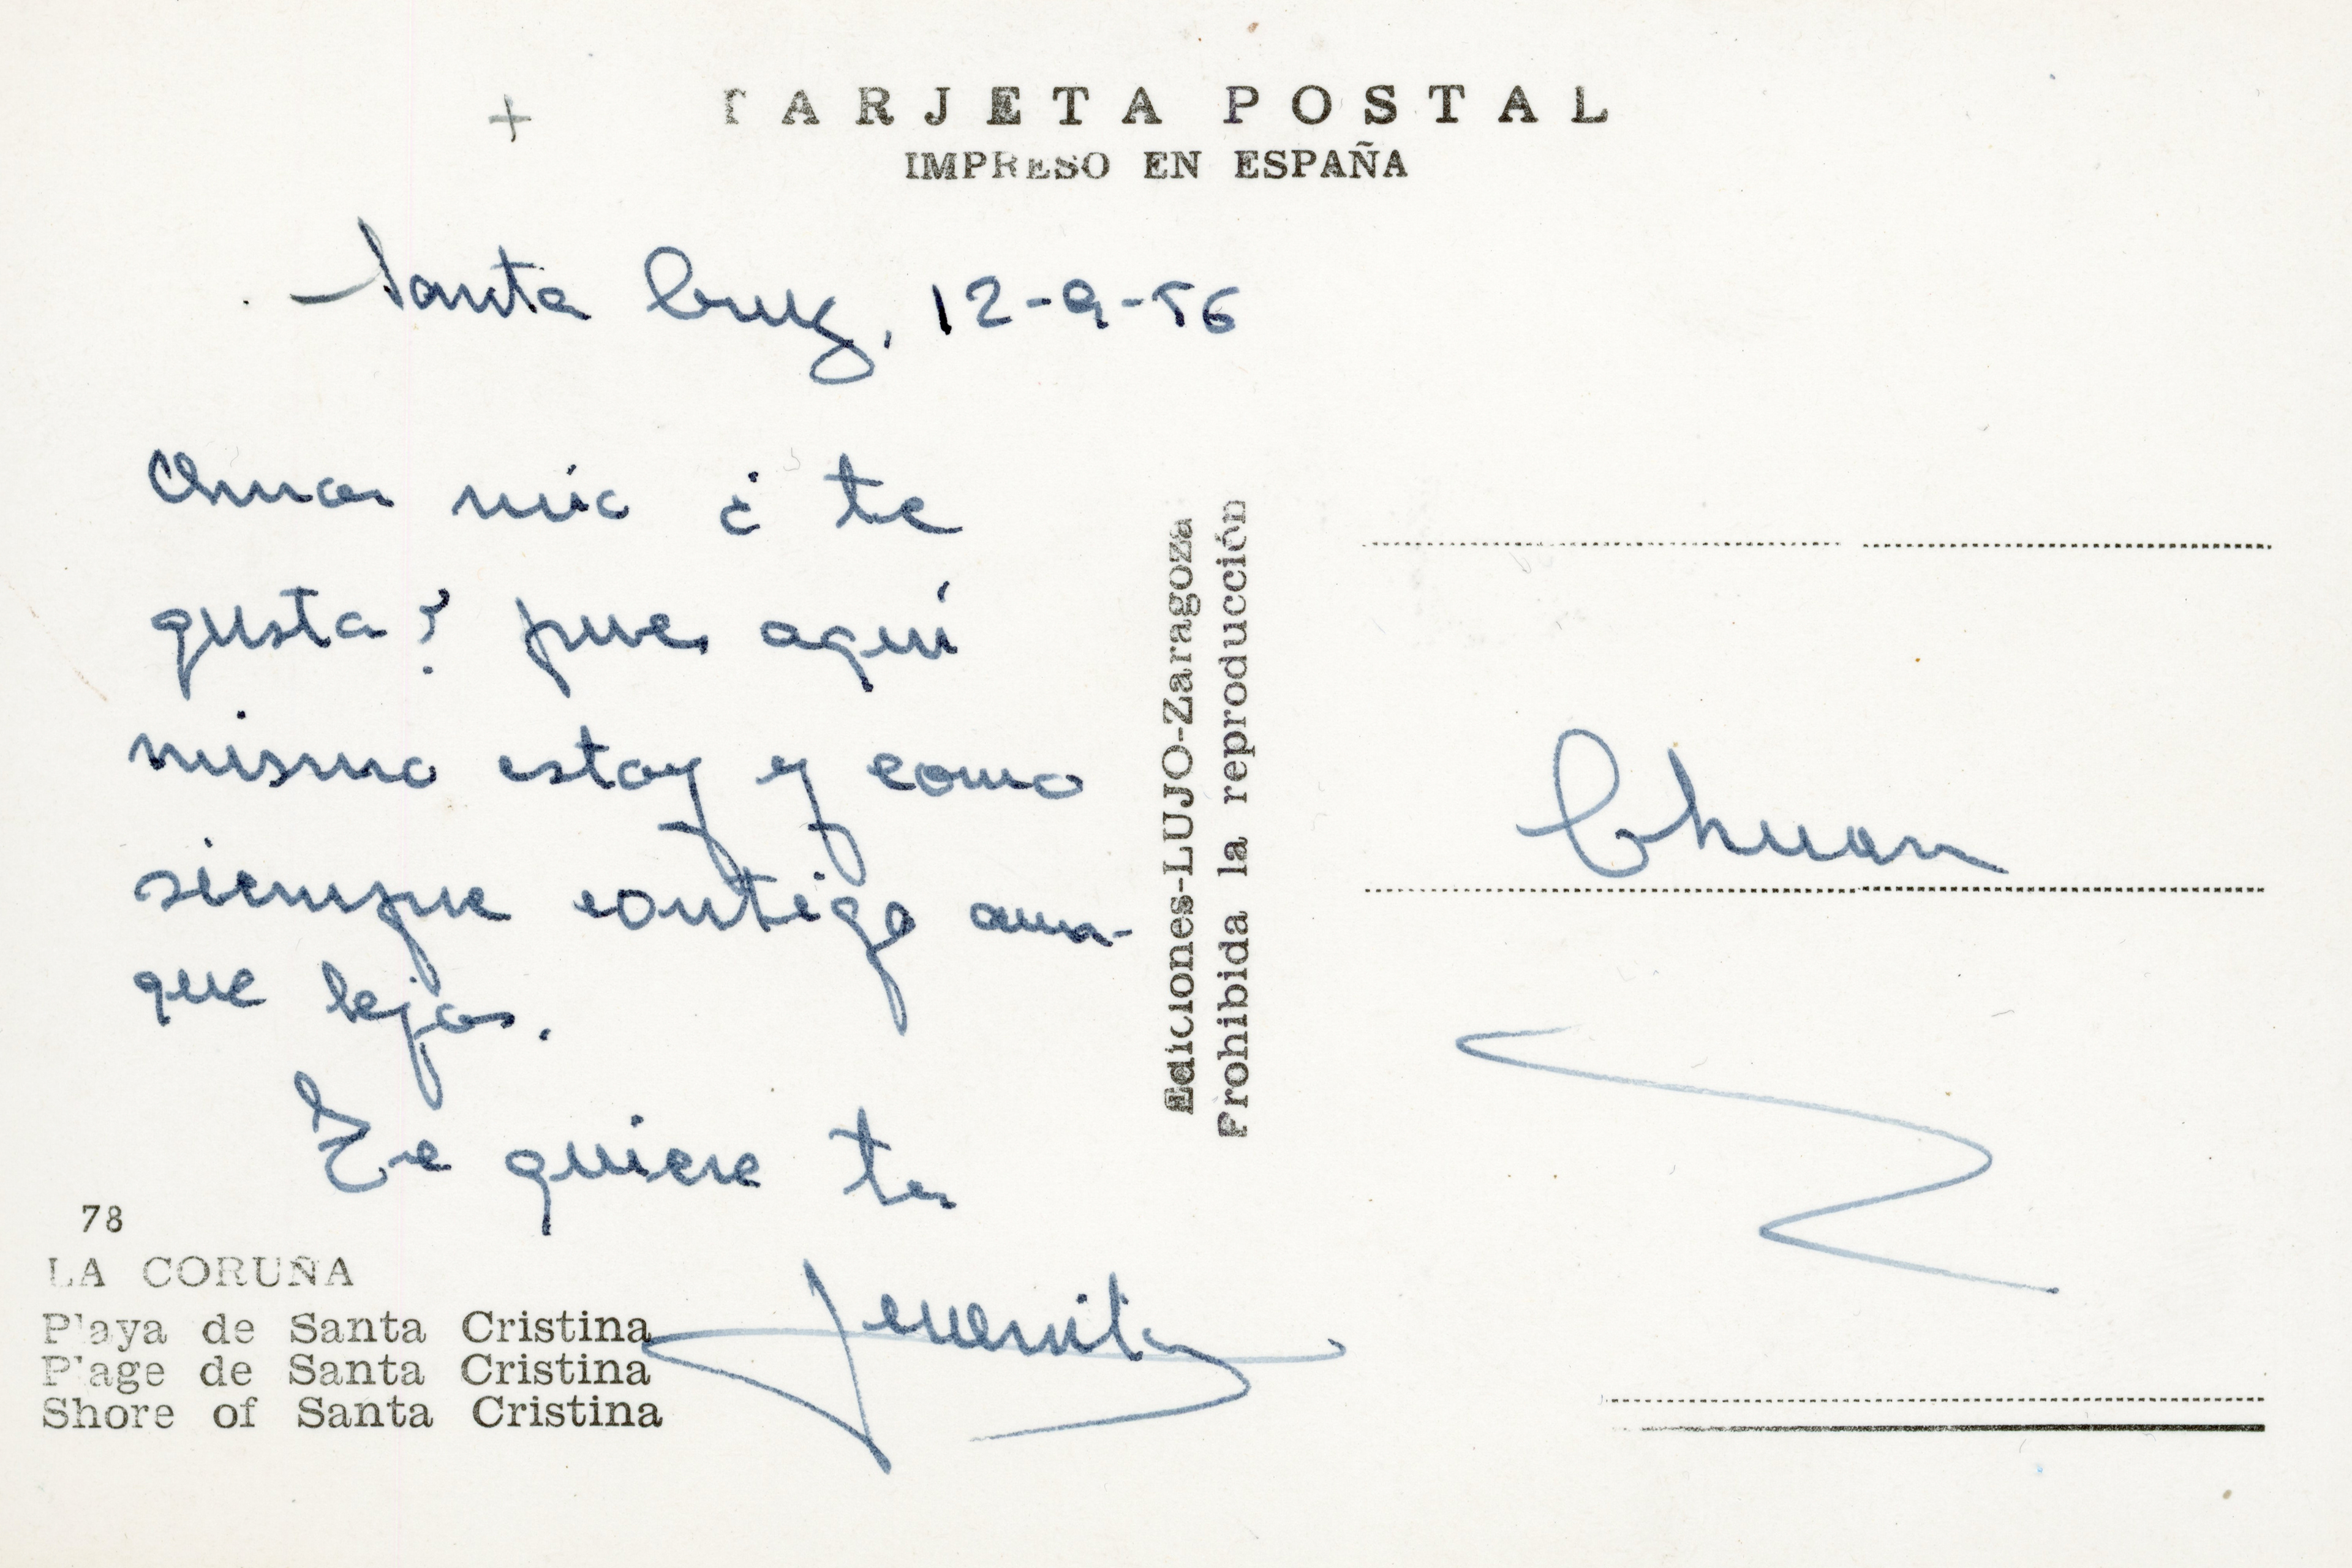 +
TARJETA POSTAL
IMPRESO EN ESPAÑA
Santa Cruz, 12-9-56
mío ¿te
gusta? pues aquí
mismo estoy y como
siempre contigo aun-
que lejos.
Te quiere tu
78
LA CORUÑA
Playa de Santa Cristina
Plage de Santa Cristina
Shore of Santa Cristina
Ediciones-LUJO-Zaragoza
Prohibida la reproducción
Chuan